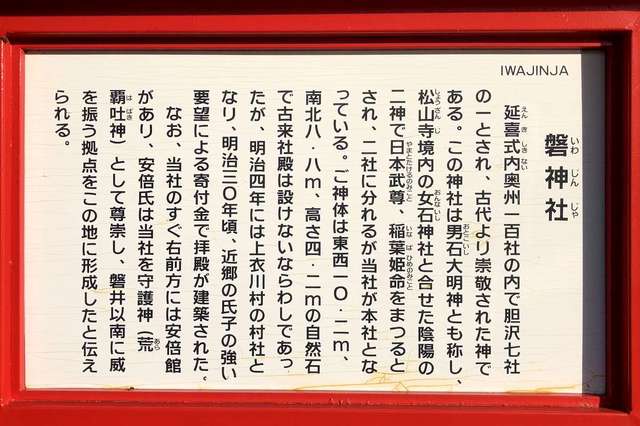 IWAJINJA
磐神社
いわ じん じゃ
延喜式内奥州一百社の内で胆沢七社
えん き しきない
の一とされ、古代より崇敬された神で
ある。この神社は男石大明神とも称し、
おとこいし
松山寺境内の女石神社と合せた陰陽の
しょうざん じ おんないし
二神で日本武尊、稲葉姫命をまつると
やまとたけるのみこと いな ば ひめのみこと
され、二社に分れるが当社が本社とな
っている。ご神体は東西一〇・二m、
南北八・八m、高さ四・二mの自然石
で古来社殿は設けないならわしであっ
たが、明治四年には上衣川村の村社と
なり、明治三〇年頃、近郷の氏子の強い
要望による寄付金で拝殿が建築された。
なお、当社のすぐ右前方には安倍館
があり、安倍氏は当社を守護神（荒
あら
覇吐神）として尊崇し、磐井以南に威
は ばき
を振う拠点をこの地に形成したと伝え
られる。